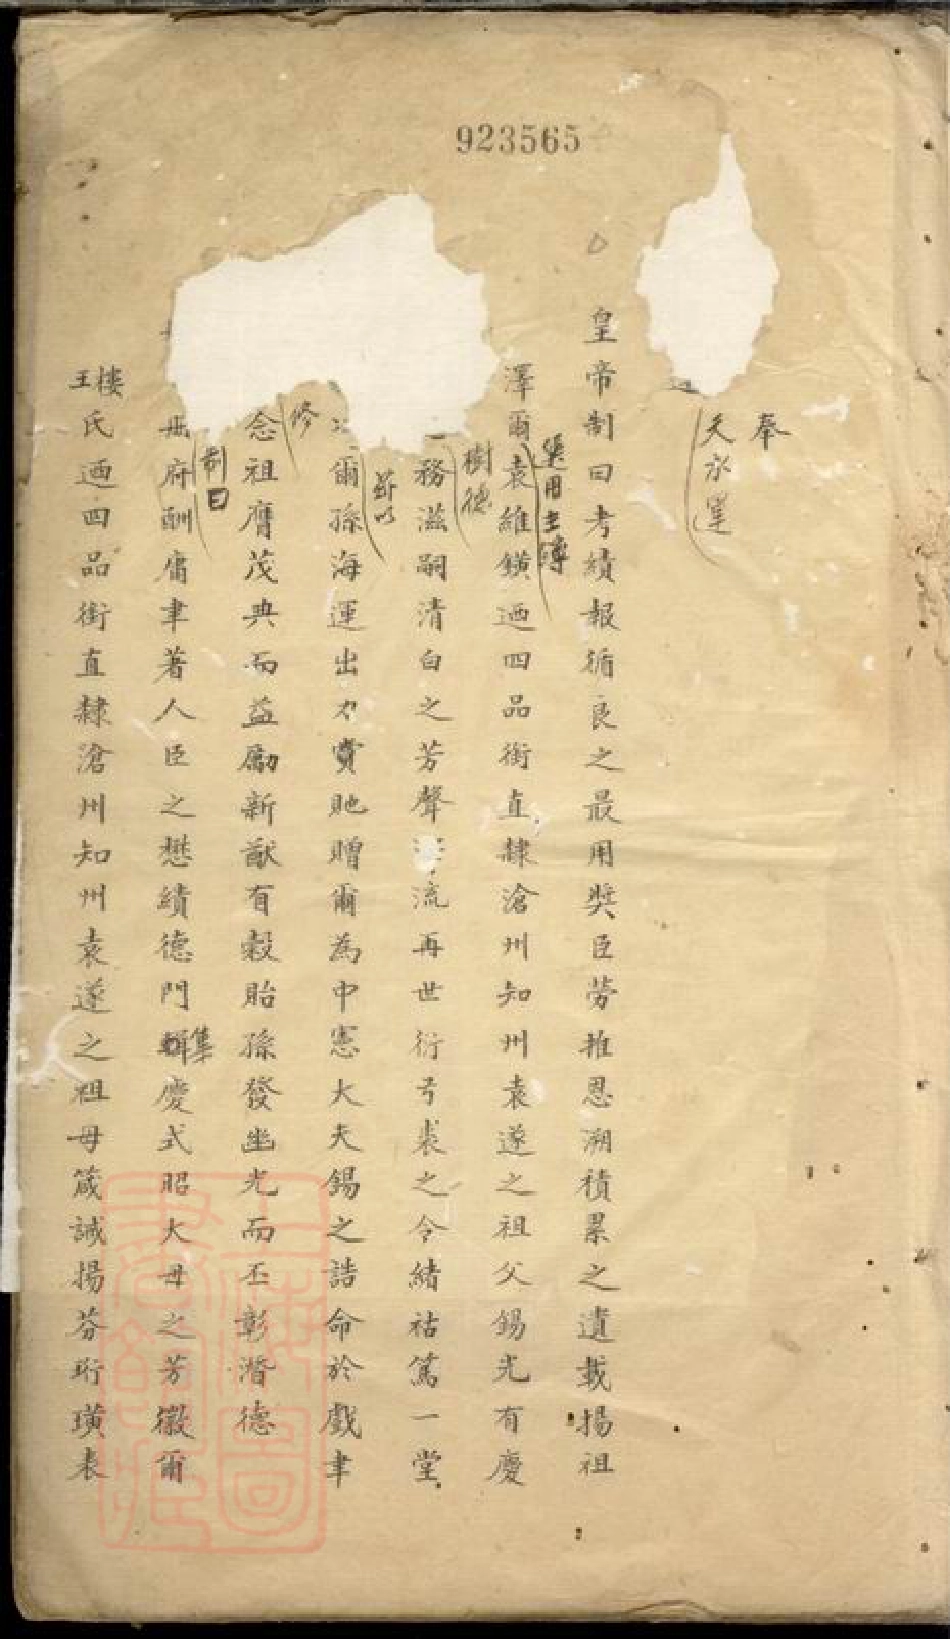 923565
奉
天承運
皇帝制曰考績報循良之最用奬臣勞推恩溯積累之遺載揚祖
澤爾袁維鐄迺四品銜直隸滄州知州袁遂之祖父錫光有慶
樹德
務滋嗣清白之芳聲流再世衍弓裘之令緒祜篤一堂
茲以
爾孫海運出力賞貤贈爾為中憲大夫錫之誥命於戲聿
修
念祖膺茂典而益勵新猷有穀貽孫發幽光而丕彰潛德
制曰
冊府酬庸聿著人臣之懋績德門輯慶式昭大母之芳徽爾
集
王樓氏迺四品銜直隸滄州知州袁遂之祖母箴誡揚芬珩璜表
上海圖書館藏